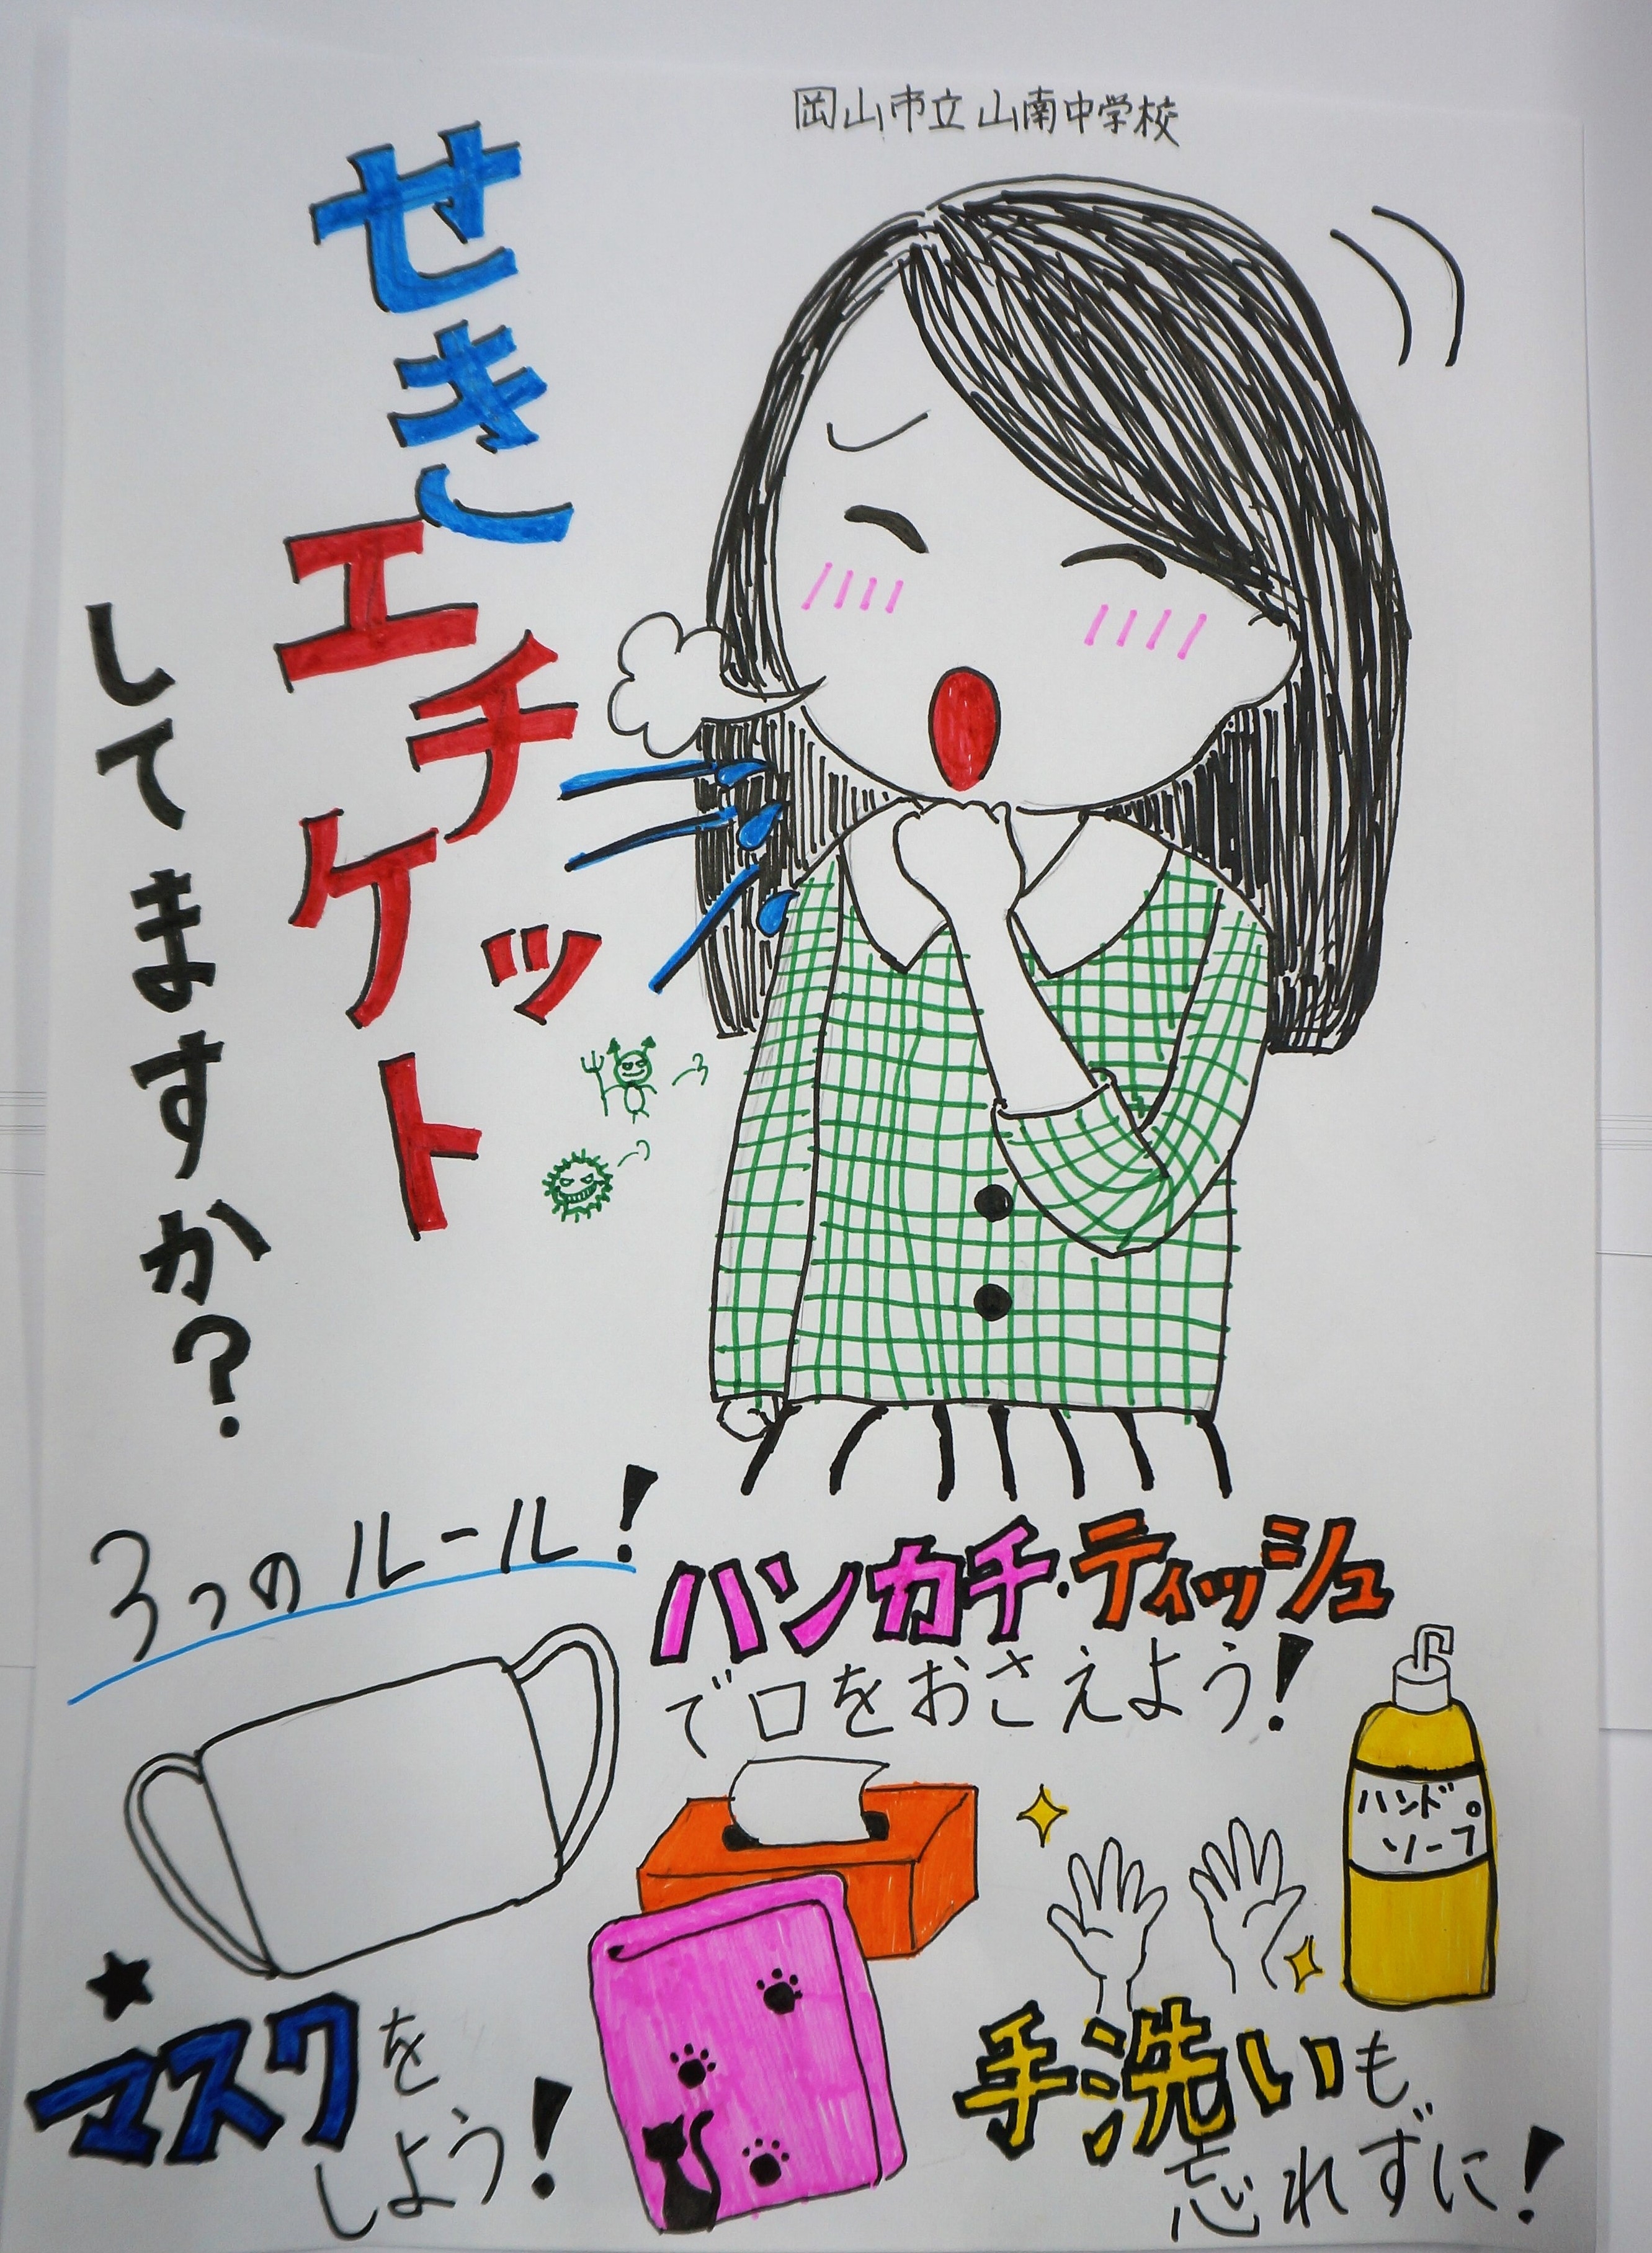 岡山市立山南中学校
せき
エチケット
してますか?
3つのルール!
ハンカチ・ティッシュ
で口をおさえよう!
ハンド
ソープ
★
マスクを
しよう!
手洗いも
忘れずに!